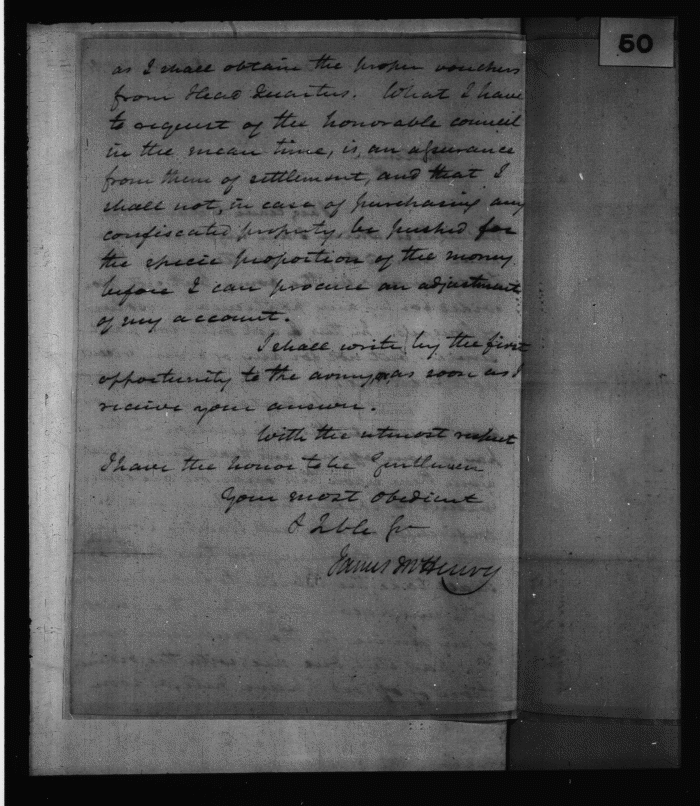 50
as I shall obtain the proper vouchers
from Head Quarters. What I have
to request of the honorable council
in the mean time, is, an assurance
from them of settlement, and that I
shall not, in case of purchasing any
confiscated property, be pushed for
the specie proportion of the money
before I can procure an adjustment
of my account.
I shall write, by the first
opportunity to the army, as soon as I
receive your answer.
With the utmost respect
I have the honor to be Gentlemen
Your most obedient
& Hble Sr
James McHenry